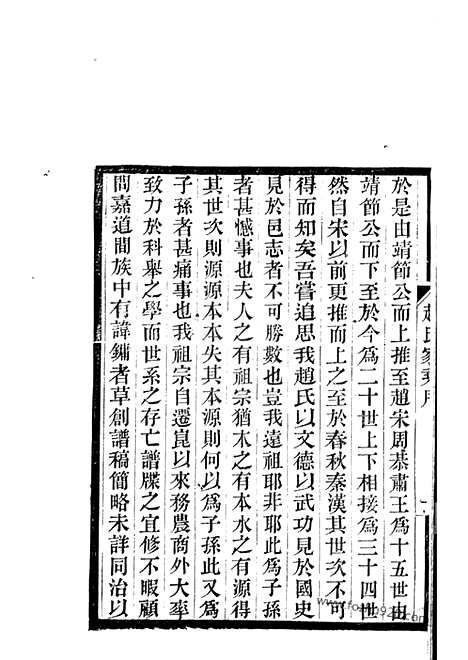 於是由靖節公而上推至趙宋周恭肅王為十五世由
靖節公而下至於今為二十世上下相接為三十四世
然自宋以前更推而上之至於春秋秦漢其世次不可
得而知矣吾嘗追思我趙氏以文德以武功見於國史
見於邑志者不可勝數也豈我遠祖耶非耶此為子孫
者甚憾事也夫人之有祖宗猶木之有本水之有源得
其世次則源源本本失其本源則何以為子孫此又為
子孫者甚痛事也我祖宗自遷崑以來務農商外大率
致力於科舉之學而世系之存亡譜牒之宜修不暇顧
問嘉道間族中有諱鏞者草創譜稿簡略未詳同治以